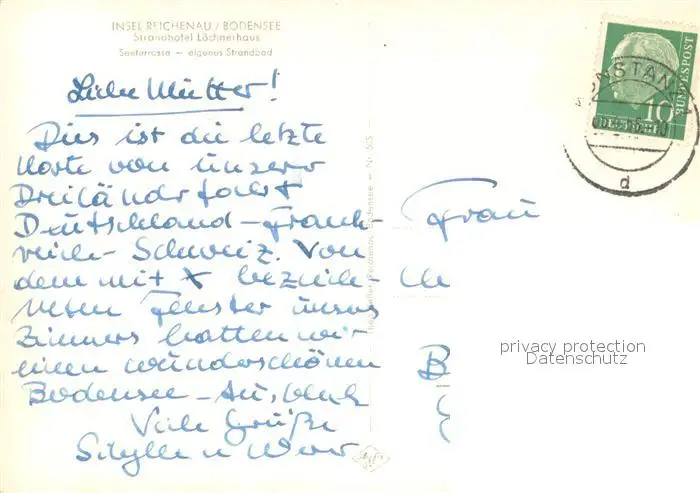 INSEL REICHENAU / BODENSEE
Strandhotel Löchnerhaus
Seeterrasse – eigenes Strandbad
Liebe Mutter!
Dies ist die letzte
Karte von unserer
Dreiländerfahrt
Deutschland – Frank-
reich – Schweiz. Von
dem mit X bezeich-
neten Fenster unseres
Zimmers hatten wir
einen wunderschönen
Bodensee – Ausblick
Viele Grüße
Sibylle u
Frau
B
KONSTANZ
d
10
DEUTSCHE
BUNDESPOST
privacy protection
Datenschutz